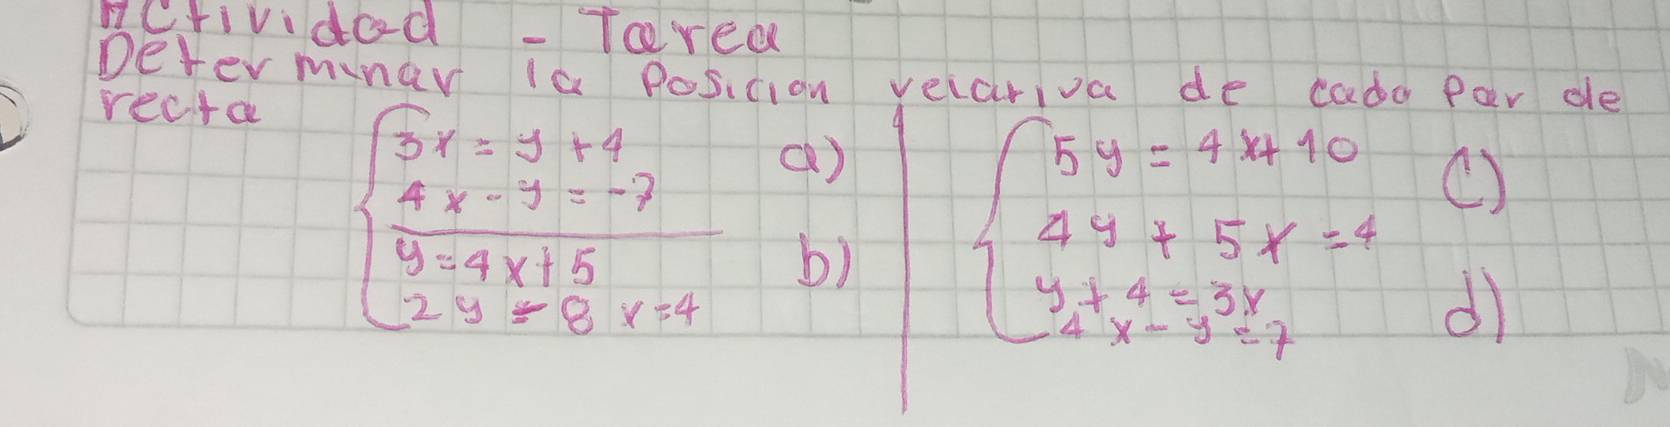 Actividad - Tarea
Determinar la Posicion relativa de cada Par de
recta
3x = y + 4 a)
4x - y = -7
y = 4x + 5 b)
2y - 8x = 4
5y = 4x + 10 c)
4y + 5x = 4
y + 4 = 3x d)
4x - y = 7